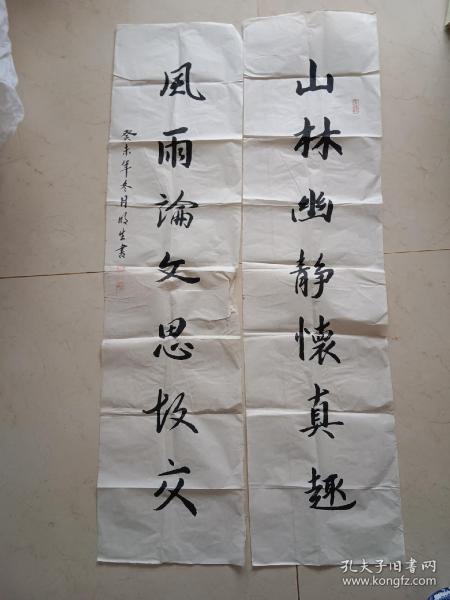 山林幽静懷真趣
風雨論文思故交
癸未年冬月明生書
孔夫子旧书网
www.kongfz.com